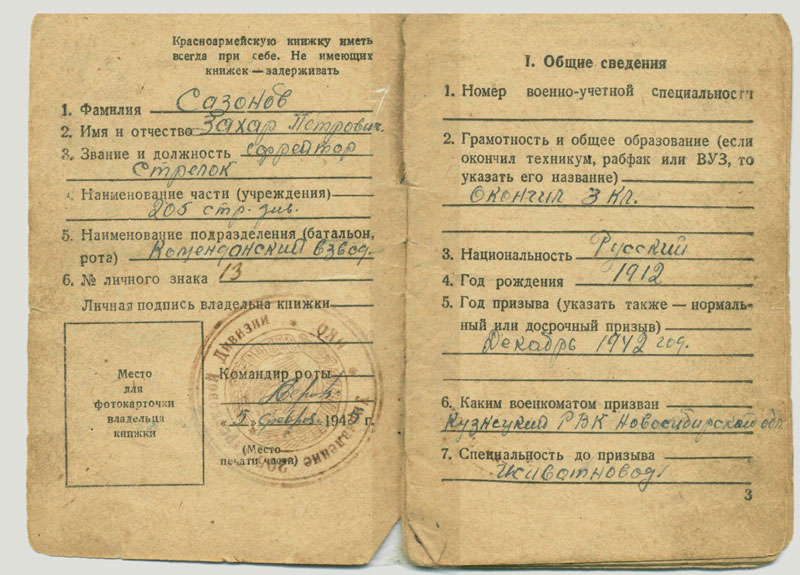 Красноармейскую книжку иметь
всегда при себе. Не имеющих
книжек — задерживать
1. Фамилия Сазонов
2. Имя и отчество Захар Петрович.
3. Звание и должность Ефрейтор
Стрелок
4. Наименование части (учреждения)
205 стр. див.
5. Наименование подразделения (батальон,
рота) Коменданский взвод.
6. № личного знака 13
Личная подпись владельца книжки
Место
для
фотокарточки
владельца
книжки
Командир роты
"5" февраля 1945 г.
(Место
печати части)
Дивизии * НКО * Управление 20
I. Общие сведения
1. Номер военно-учетной специальности
2. Грамотность и общее образование (если
окончил техникум, рабфак или ВУЗ, то
указать его название)
Окончил 3 кл.
3. Национальность Русский
4. Год рождения 1912
5. Год призыва (указать также — нормаль-
ный или досрочный призыв)
Декабрь 1942 год.
6. Каким военкоматом призван
Кузнецкий РВК Новосибирской обл
7. Специальность до призыва
Животновод
3